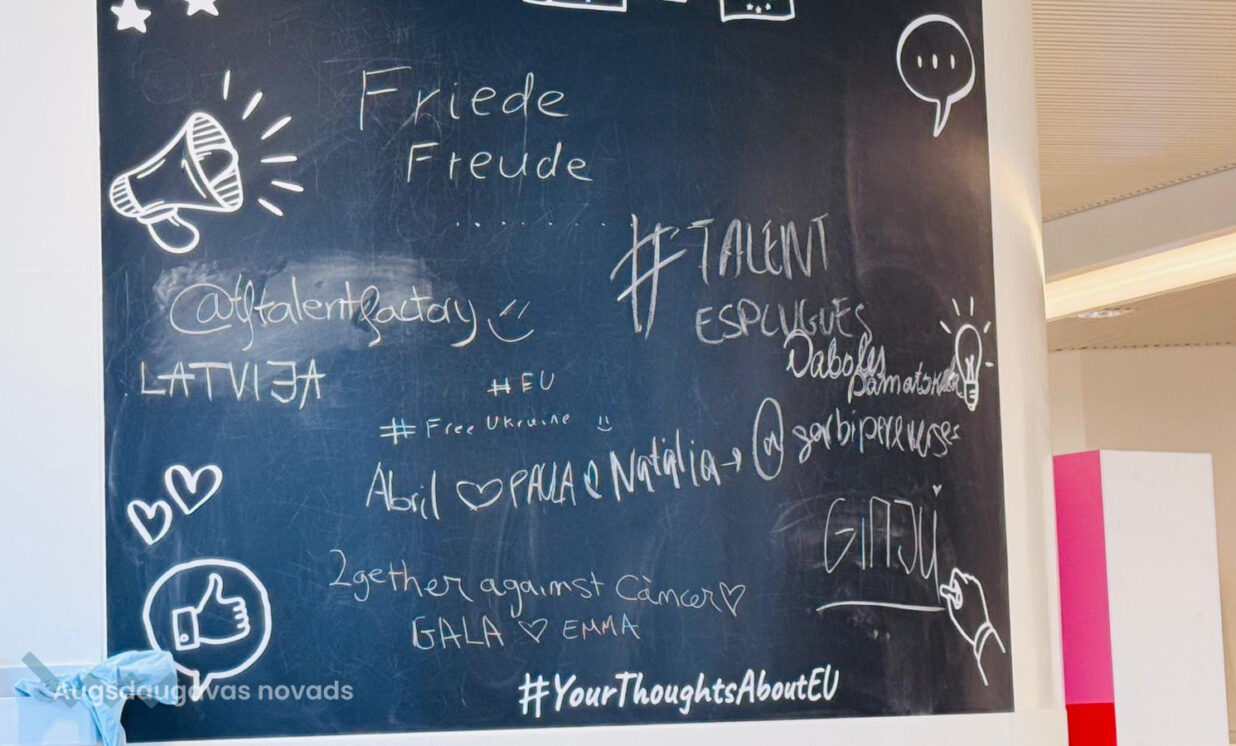 Friede
Freude
.......
#TALENT
ESPLUGUES
@tftalentfactory
Dabolis
LATVIJA
#EU
#Free Ukraine
Abril ♡ PAULA & Natàlia → @
2gether against Càncer ♡
GALA ♡ EMMA
#YourThoughtsAboutEU
Augsdaugavas novads